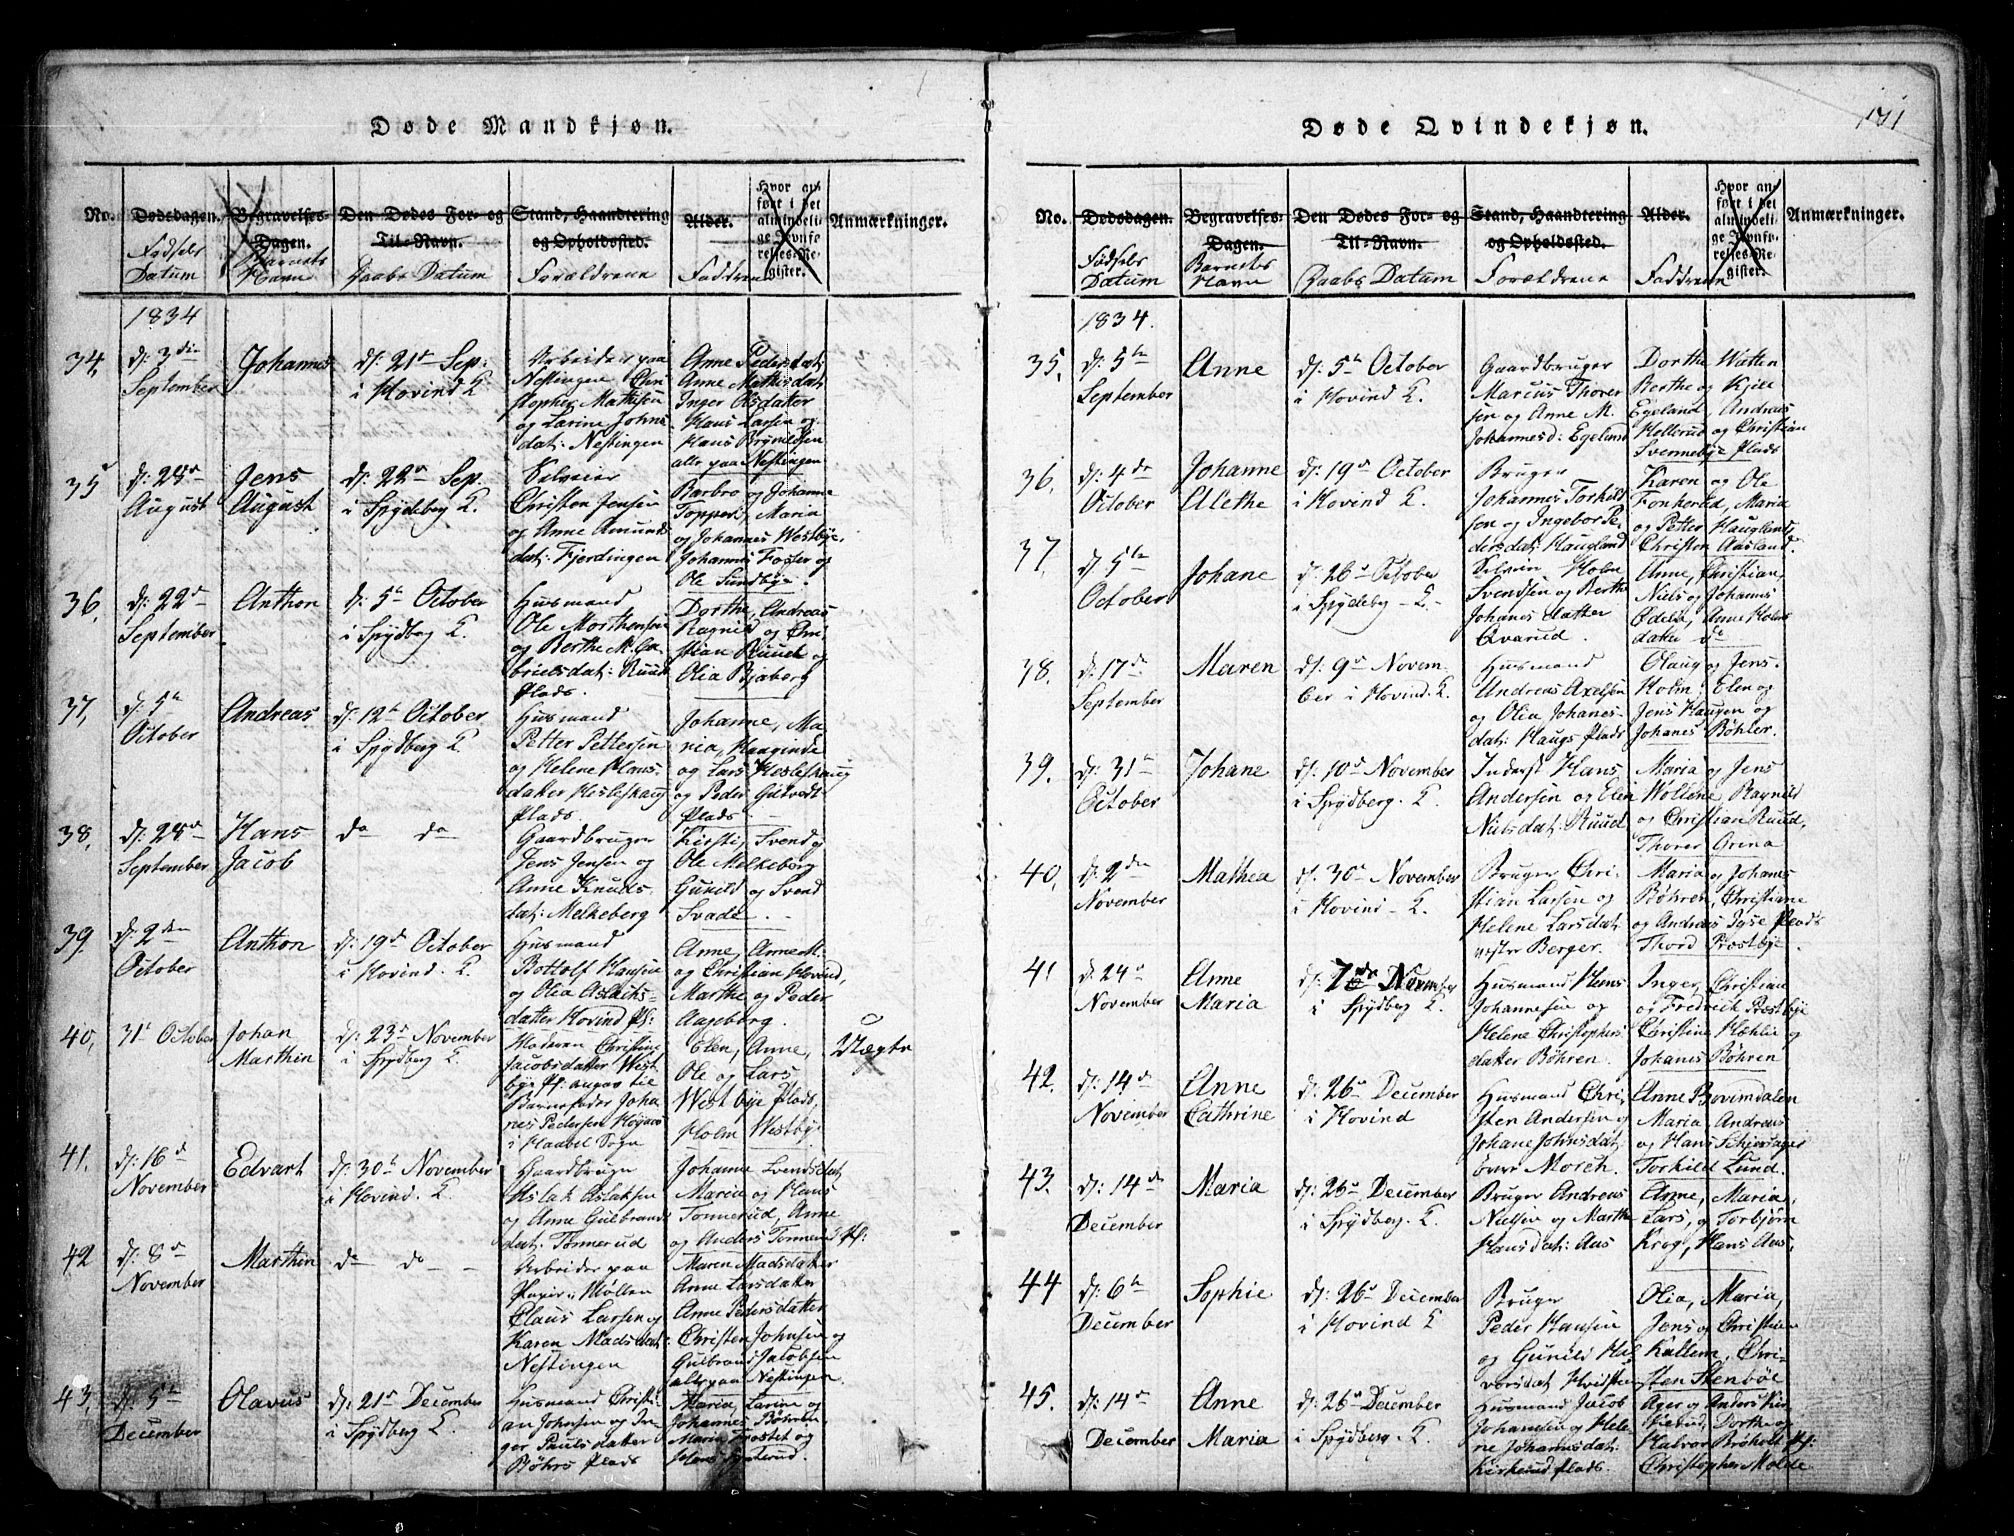 Døde Mandkjøn.
No.
Dødsdagen.
Begravelses-
Dagen.
Den Dødes For- og
Til-Navn.
Stand, Haandtering
og Opholdssted.
Alder.
Hvor an-
ført i det
almindeli-
ge Jevnfø-
relses-Re-
gister.
Anmærkninger.
Fødsels
Datum
Barnets
Navn
Daabs Datum
Forældrene
Faddrene
1834
34,
d: 3die
September
Johannes
d: 21de Sep:
i Hovind K
Arbeider paa
Nestingen Chri
stopher Mathisen
og Larine Johns
dat: Nestingen
Anne Pedersdat:
Anne Mathisdat:
Inger Olsdatter
Hans Larsen og
Hans Brynildsen
alle paa Nestingen
35
d: 28de
August
Jens
August
d: 22de Sep.
i Spydeberg K.
Selveier
Christen Jensen
og Anne Amunds
dat: Fjerdingen
Barbro og Johanne
Topperi, Maria
og Johannes Westbye,
Johannes Fosser og
Ole Sundbye.
36,
d: 22de
September
Anthon
d: 5te October
i Spydberg K.
Husmand
Ole Morthensen
og Berthe M. Ga-
brielsdat: Ruud
Plads.
Dorthe, Andreas
Ragnild og Chri-
stian Ruud og
Olia Bjaberg
37,
d: 5te
October
Andreas
d: 12te October
i Spydberg K.
Husmand
Petter Pettersen
og Helene Hans-
datter Hesleskaug
Plads.
Johanne, Ma-
ria, Haaginde
og Lars Hesleskaug
og Peder Gutvedt
Plads
38,
d: 28de
September
Hans
Jacob
do do
Gaardbruger
Jens Jensen og
Anne Knuds-
dat: Melkeberg
Kirsti, Svend og
Ole Melkeberg
Gunild og Svend
Svade
39.
d: 2den
October
Anthon
d: 19de October
i Hovind. K.
Husmand
Bottolf Hansen
og Olia Aslaks-
datter Hovind Pl:
Anne, Anne M.
og Christian Hovind,
Marthe og Peder
Aageberg.
40,
31te October
Johan
Marthin
d: 23de November
i Spydberg K.
Moderen Christine
Jacobsdatter West-
bye Pl. angav til
Barnefader Joha
nes Pedersen Høgaas
i Haabøl Sogn
Elen, Anne,
Ole og Lars
Westbye Plads,
Holm Westby
Uægte
41.
d: 16de
November
Edvart
d: 30te November
i Hovind. K.
Gaardbruger
Aslak Aslaksen
og Anne Gulbrands
dat: Tonnerud
Johanne Svendsdat
Maria og Hans
Tonnerud, Anne
og Anders Tonnerud Pl:
42
d: 8de
November
Marthin
do do
Arbeider paa
Papir Møllen
Claus Larsen og
Karen Madsdat:
Nestingen
Maren Madsdatter
Anne Larsdatter
Anne Pedersdatter
Christen Johnsen og
Gulbrand Jacobsen
alle paa Nestingen
43,
d: 5te
December
Olavus
d: 21de December
i Spydberg K.
Husmand Christi-
an Johnsen og In-
ger Paulsdatter
Bøhrs Plads
Maria, Larine og
Johannes Bøhren
Maria
171
Døde Qvindekjøn.
No.
Dødsdagen.
Begravelses-
Dagen.
Den Dødes For- og
Til-Navn.
Stand, Haandtering
og Opholdssted.
Alder.
Hvor an-
ført i det
almindeli-
ge Jevnfø-
relses-Re-
gister.
Anmærkninger.
Fødsels
Datum
Barnets
Navn
Daabs Datum
Forældrene
Faddrene
1834.
35.
d: 5te
September
Anne
d: 5te October
i Hovind K.
Gaardbruger
Marcus Thorer
sen og Anne M.
Johannesd: Egeland
Dorthe Watten
Berthe og Kjell
Egeland, Andreas
Hellerud og Christian
Svennebye Plads
36.
d: 4de
October
Johanne
Alethe
d: 19de October
i Hovind K.
Bruger
Johannes Torkild
sen og Ingebor Pe-
dersdat: Haugland
Karen og Ole
Fonkerud, Maria
og Petter Haugland,
Christen Aasland.
37.
d: 5te
October
Johane
d: 26de October
i Spydeberg K.
Selveier Holm
Svendsen og Berthe
Johanes datter
Qvarud.
Anne, Christian,
Niels og Johannes
Ødeby, Anne Hols
datter do
38.
d: 17de
September
Maren
d: 9de Novem-
ber i Hovind. K.
Husmand
Andreas Axelsen
og Olia Johanes-
dat: Haugs Plads
Olaug og Jens
Holm, Elen og
Jens Haugen og
Johanes Bøhler.
39.
d: 31te
October
Johane
d: 10de November
i Spydberg. K.
Inderst Hans
Andersen og Elen
Nielsdat: Ruud
Maria og Jens
Wollene, Ragnild
og Christian Ruud,
Thorer Grena
40,
d: 2den
November
Mathea
d: 30te November
i Hovind K.
Bruger Chri-
stian Larsen og
Helene Larsdat:
vestre Berger.
Maria og Johanes
Bøhren, Christiane
og Andreas Lyse Plads
Thord Prostbye.
41
d: 24de
November
Anne
Maria
d: 7de November
i Spydberg K.
Husmand Hans
Johannesen og
Helene Christophers
datter Bøhren.
Inger, Christian
og Fredrik Prestbye
Christine Hæhlie og
Johanes Bøhren
42.
d: 14de
November
Anne
Cathrine
d: 26de December
i Hovind
Husmand Chri-
sten Andersen og
Johane Johnsdat,
øvre Morch.
Anne Bovimdalen
Maria, Andreas
og Hans Schiensager
Torkild Lund.
43.
d: 14de
December
Maria
d: 26de December
i Spydberg. K.
Bruger Andreas
Nielsen og Marthe
Hansdat: Aas
Anne, Maria,
Lars, og Torbjørn
Krog, Hans Aas.
44
d: 6te
December
Sophie
d: 26de December
i Hovind K
Bruger
Peder Hansen
og Gunild Hal
vorsdat Hvidsteen
Olia, Maria,
Jens og Christian
Kallem, Chri-
sten Stenbøl
45.
d: 14de
December
Anne
Maria
d: 26de December
i Spydberg. K.
Husmand Jacob
Johansen og Hele-
ne Johannesdat:
Kirkerud Plads.
Ager og Anders Kir-
kerud, Dorthe og
Halvor Brøholt Pl:
Christopher Molde